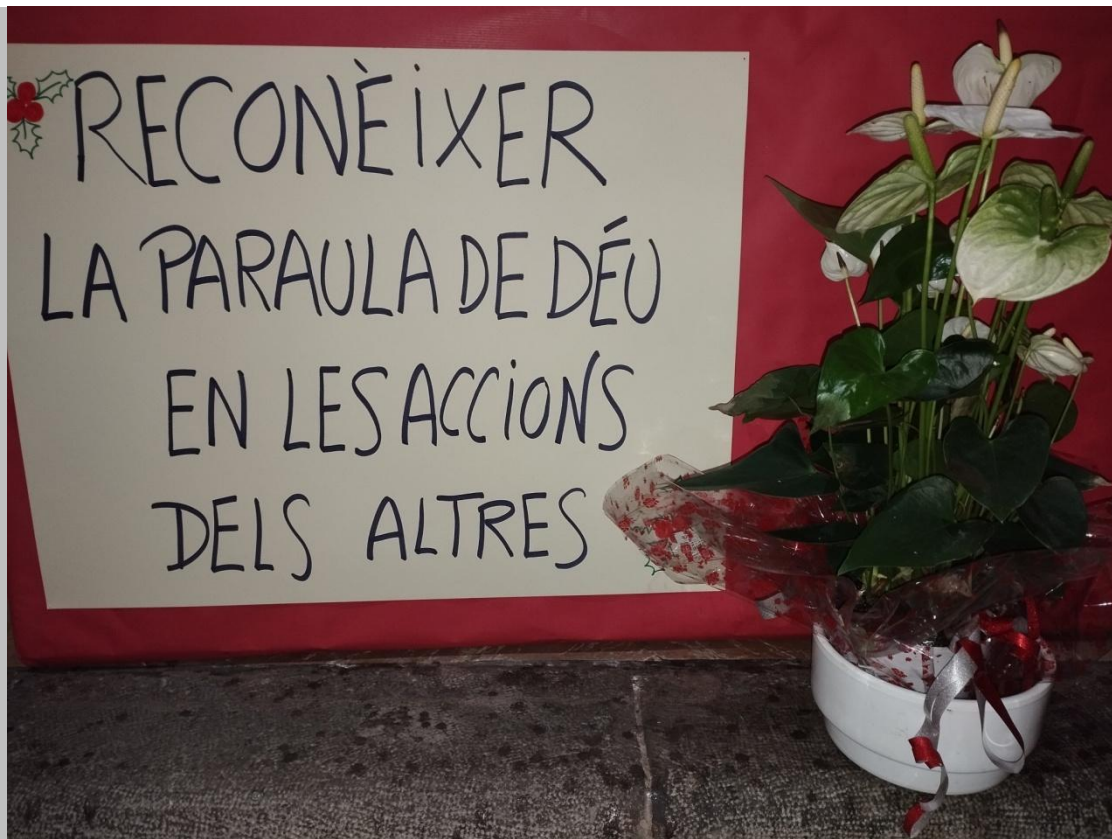 RECONÈIXER
LA PARAULA DE DÉU
EN LES ACCIONS
DELS ALTRES